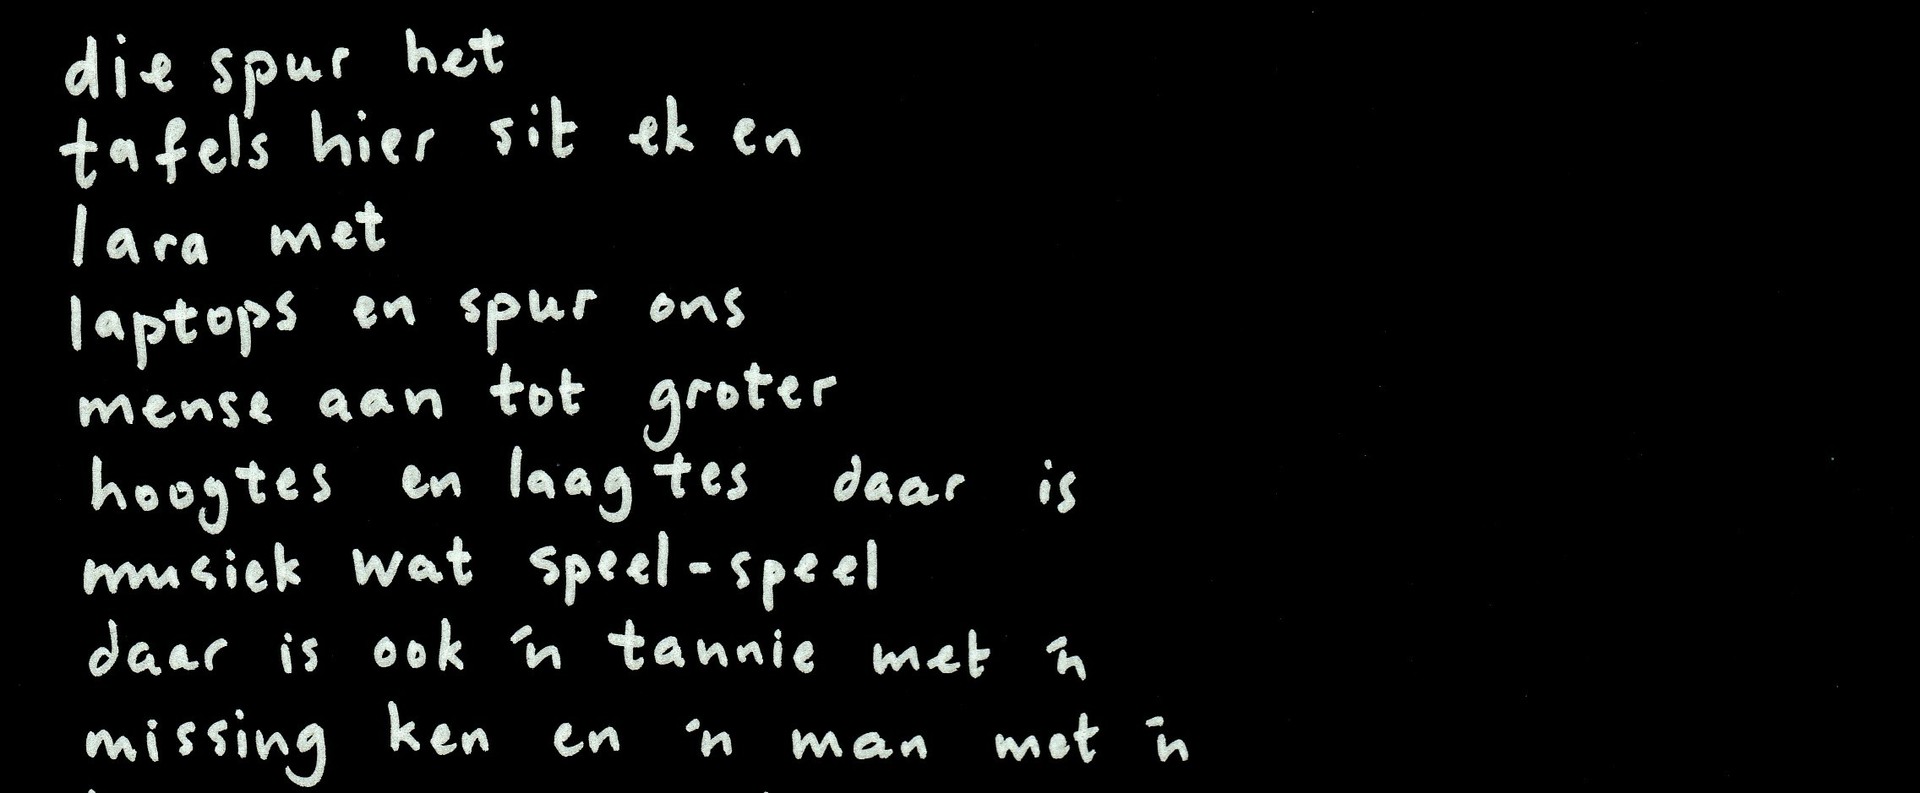 die spur het
tafels hier sit ek en
lara met
laptops en spur ons
mense aan tot groter
hoogtes en laagtes daar is
musiek wat speel-speel
daar is ook 'n tannie met 'n
missing ken en 'n man met 'n